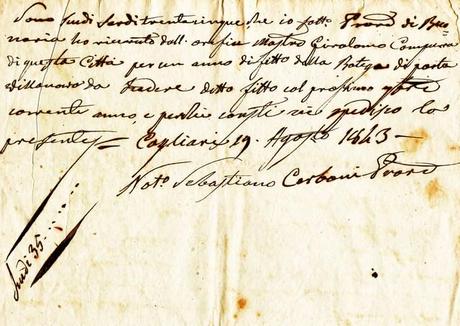 Sono scudi sardi trentacinque, che io sott.º Procr.e di Bo=
naria ho ricevuto dall'orefice Mastro Girolamo
di questa Città per un anno di fitto della Botega di porta
Villanova da scadere ditto fitto col prossimo
corrente anno, e perchè consti ne spedisco la
presente = Cagliari 19. Agosto 1843 —
Not.º Sebastiano Carboni Procr.e
Scudi 35......